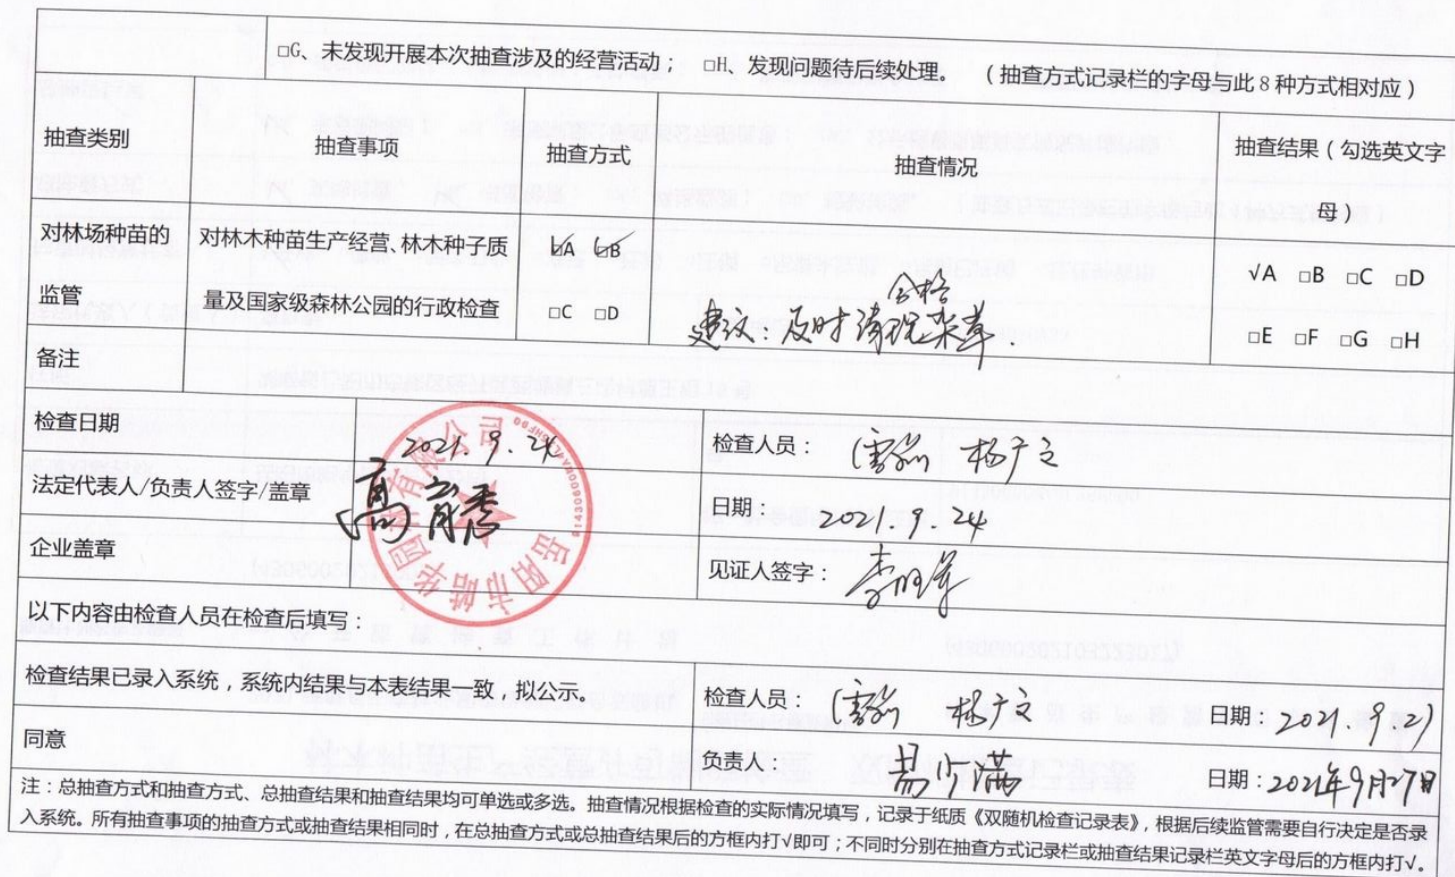 □G、未发现开展本次抽查涉及的经营活动； □H、发现问题待后续处理。 （抽查方式记录栏的字母与此8种方式相对应）
抽查类别 抽查事项 抽查方式 抽查情况 抽查结果（勾选英文字
母）
对林场种苗的 对林木种苗生产经营、林木种子质 √A √B √A □B □C □D
监管 量及国家级森林公园的行政检查 □C □D 合格 □E □F □G □H
建议：及时清理杂草.
备注
检查日期 2021.9.24 检查人员： 杨广立
法定代表人/负责人签字/盖章 日期：2021.9.24
企业盖章 见证人签字：
岳阳市皓华园林有限公司
以下内容由检查人员在检查后填写：
检查结果已录入系统，系统内结果与本表结果一致，拟公示。 检查人员： 杨广立 日期：2021.9.27
同意 负责人： 日期：2021年9月27日
注：总抽查方式和抽查方式、总抽查结果和抽查结果均可单选或多选。抽查情况根据检查的实际情况填写，记录于纸质《双随机检查记录表》，根据后续监管需要自行决定是否录
入系统。所有抽查事项的抽查方式或抽查结果相同时，在总抽查方式或总抽查结果后的方框内打√即可；不同时分别在抽查方式记录栏或抽查结果记录栏英文字母后的方框内打√。